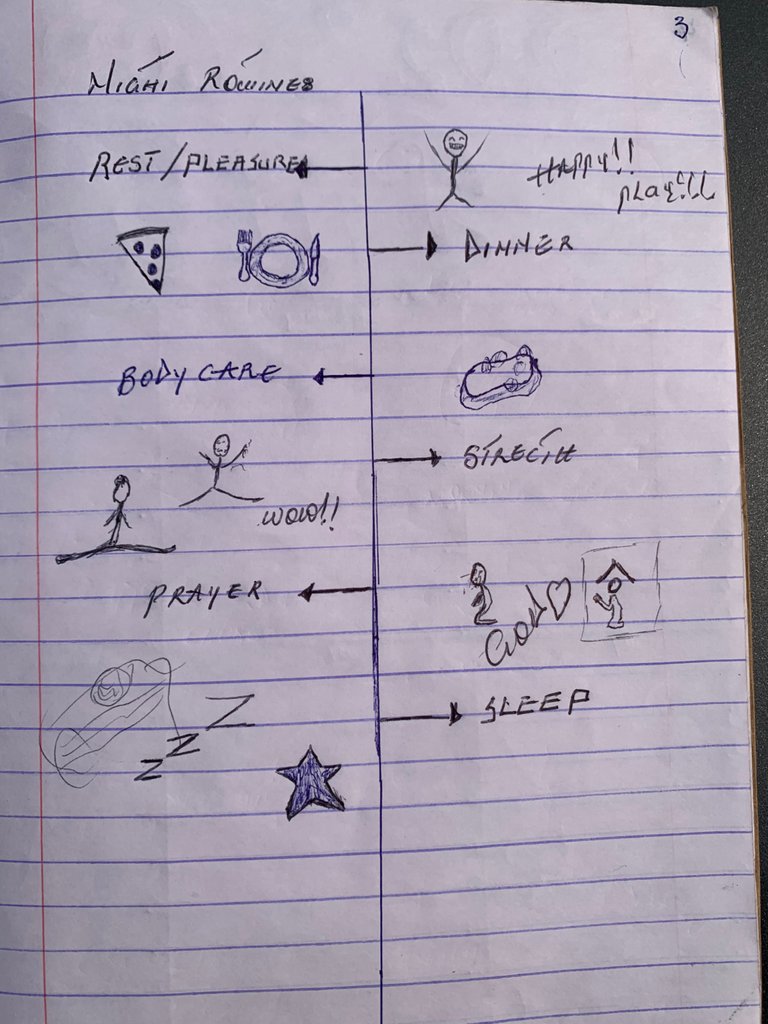 3
NIGHT ROUTINES
REST/PLEASURE
HAPPY!!
PLAY!!!
DINNER
BODY CARE
STRECTH
WOW!!
PRAYER
God
SLEEP
Z
Z
Z